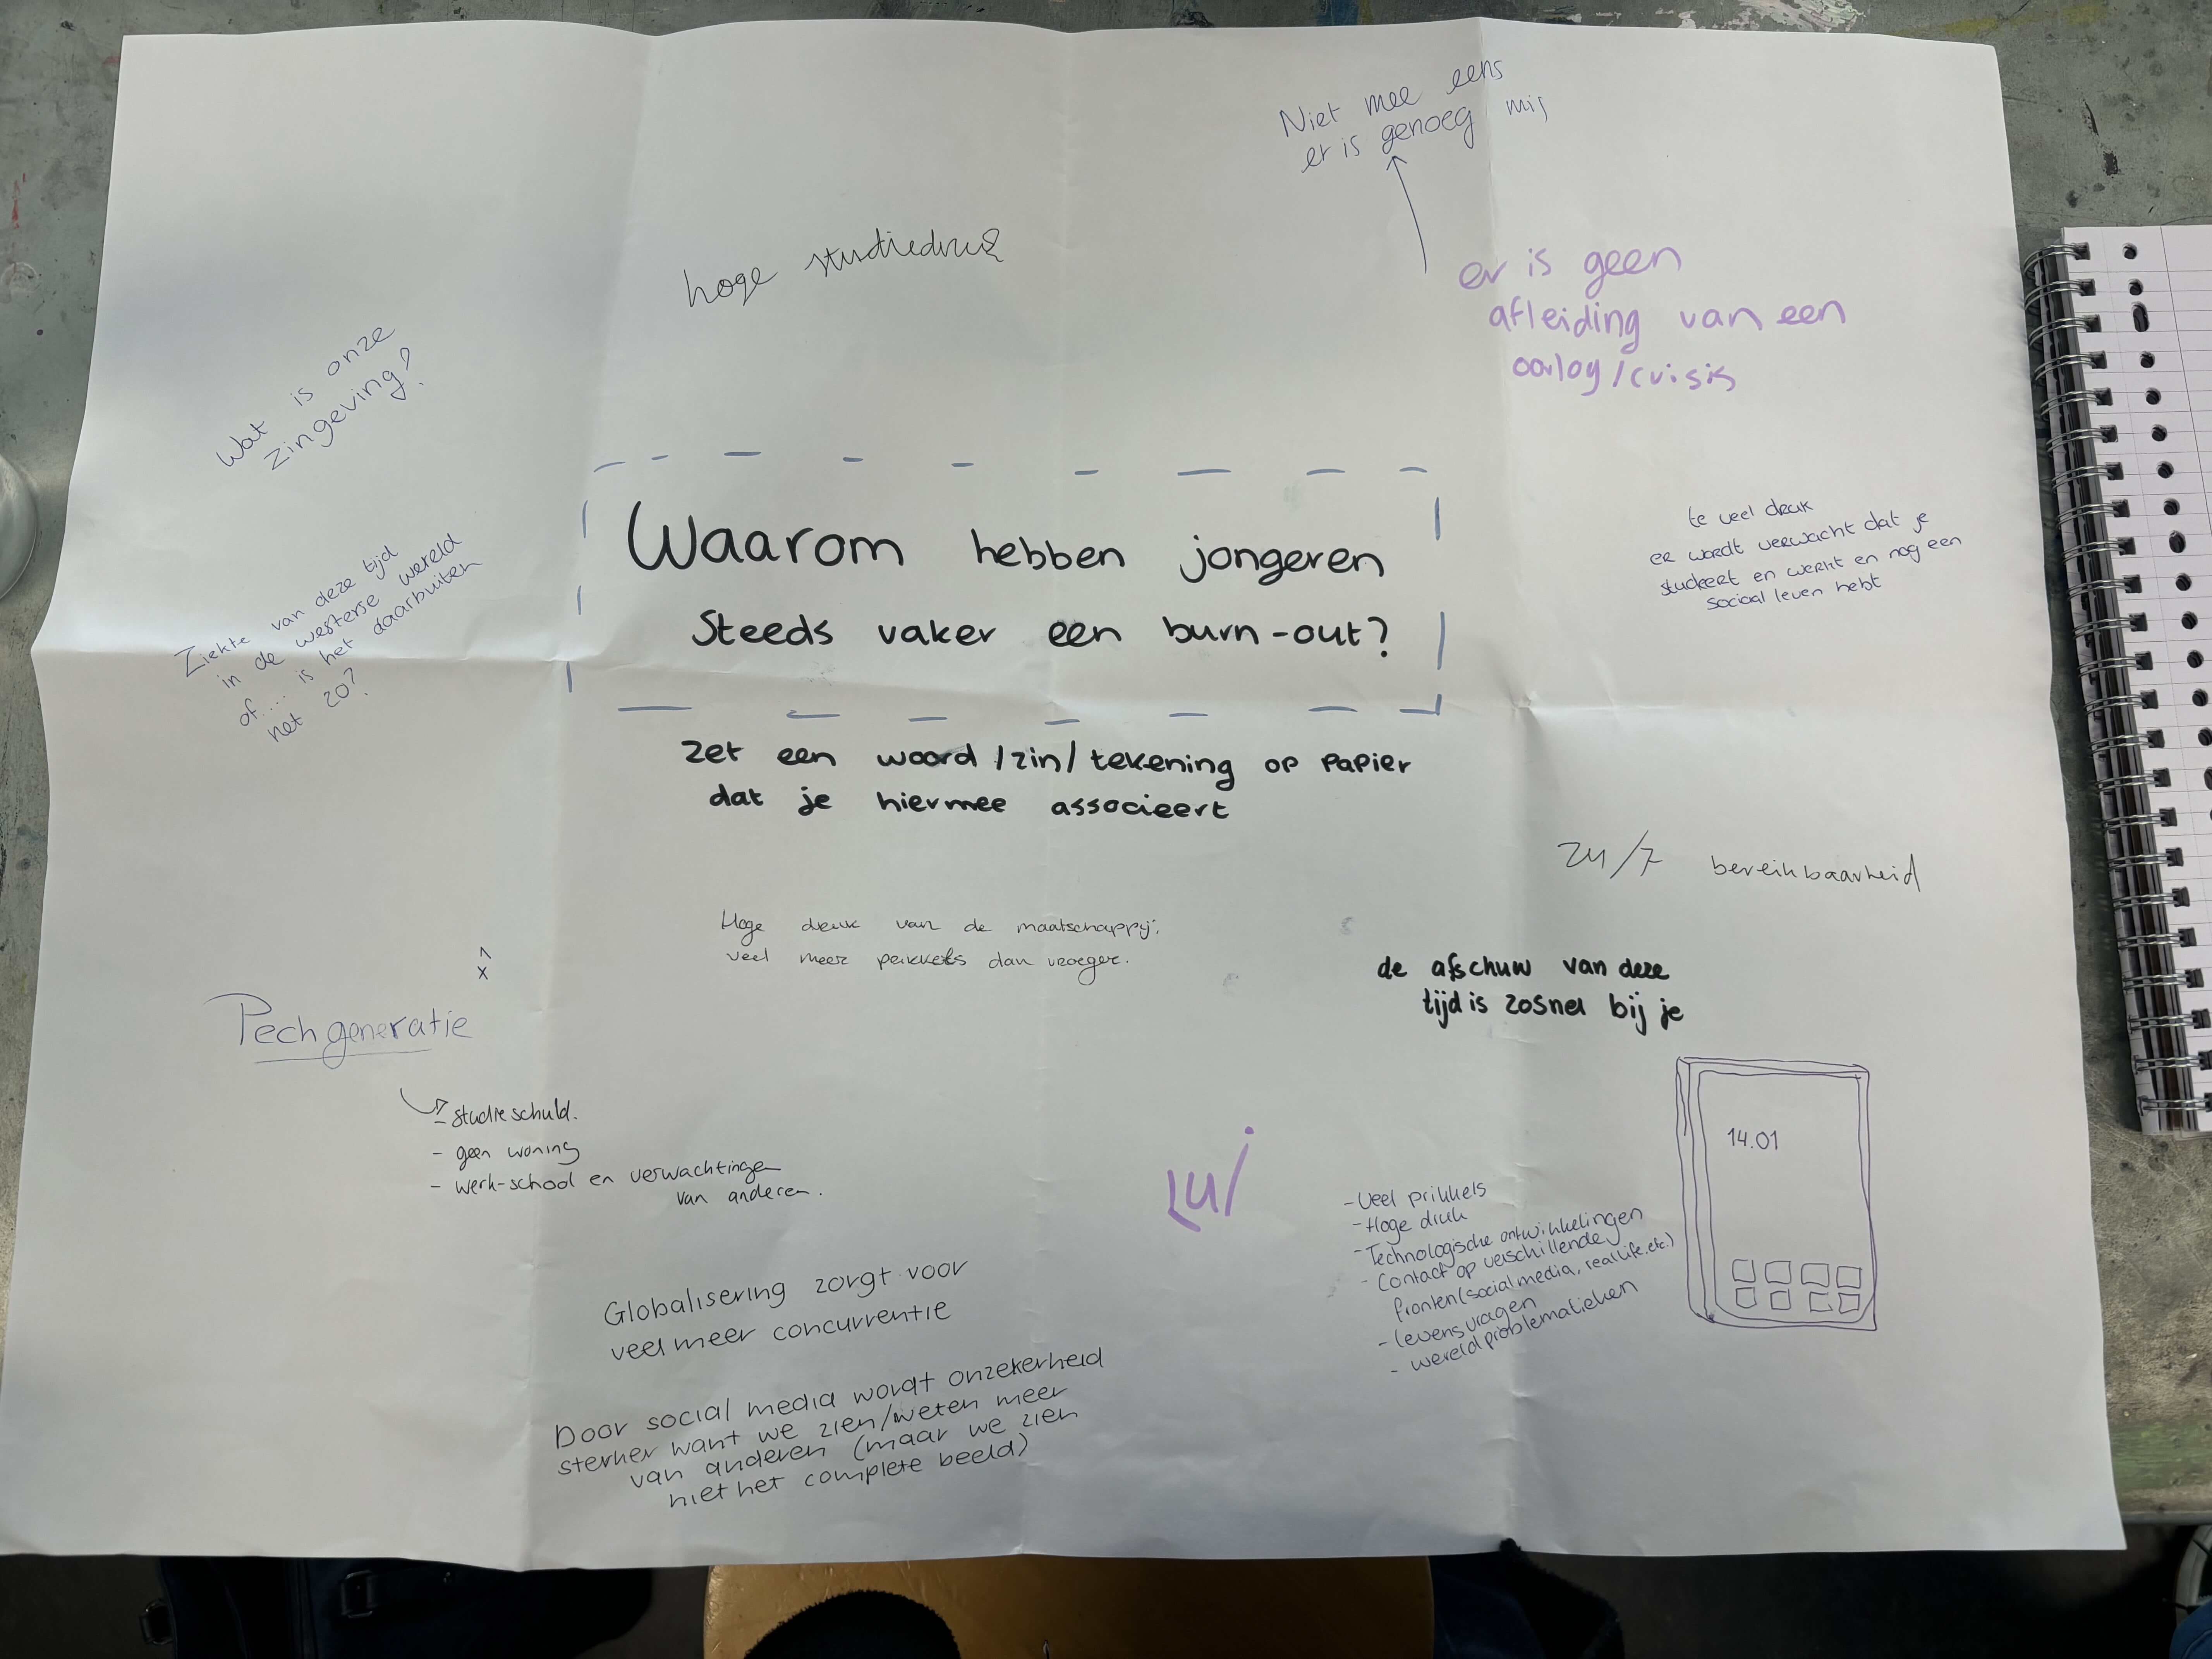 Niet mee eens
er is genoeg mis
hoge studiedruk
er is geen
afleiding van een
oorlog/crisis
Wat is onze
zingeving?
Waarom hebben jongeren
steeds vaker een burn-out?
te veel druk
er wordt verwacht dat je
studeert en werkt en nog een
sociaal leven hebt
Ziekte van deze tijd
in de westerse wereld
of ... is het daarbuiten
net zo?
zet een woord/zin/tekening op papier
dat je hiermee associeert
24/7 bereikbaarheid
Hoge druk van de maatschappij;
veel meer prikkels dan vroeger.
de afschuw van deze
tijd is zo snel bij je
^
x
Pechgeneratie
- studieschuld.
- geen woning
- werk-school en verwachtingen
van anderen.
14.01
lui
- Veel prikkels
- Hoge druk
- Technologische ontwikkelingen
- Contact op verschillende
fronten (social media, real life, etc.)
- levensvragen
- wereldproblematieken
Globalisering zorgt voor
veel meer concurrentie
Door social media wordt onzekerheid
sterker want we zien/weten meer
van anderen (maar we zien
niet het complete beeld)